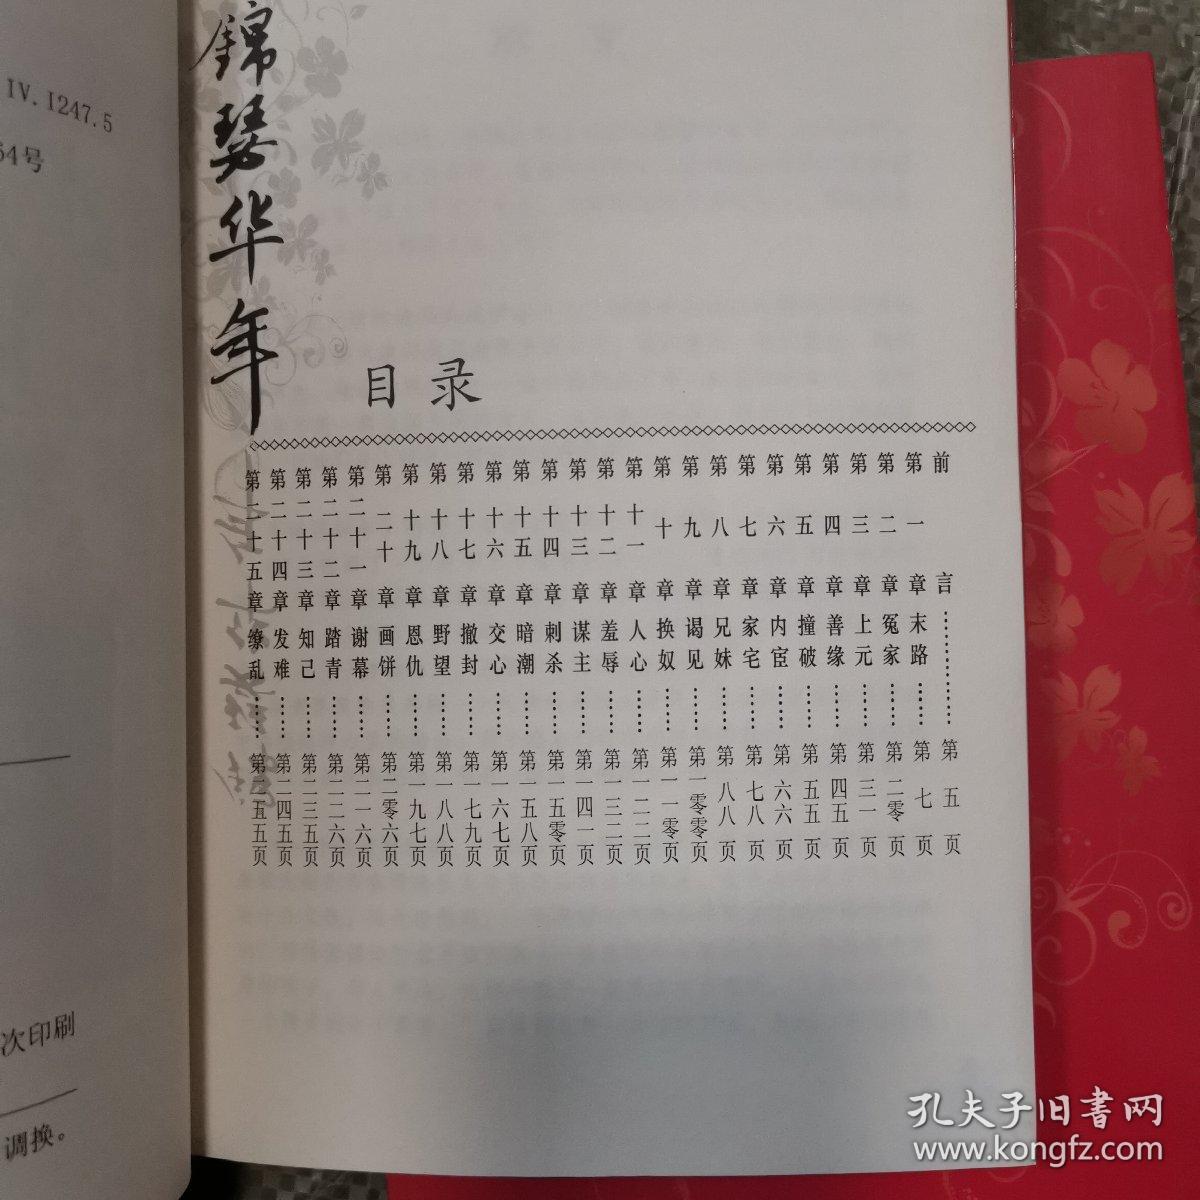 IV. I247.5
64号
次印刷
调换。
錦瑟华年
目录
前言………………第五页
第一章 末路………第七页
第二章 冤家………第二零页
第三章 上元………第三一页
第四章 善缘………第四五页
第五章 撞破………第五五页
第六章 内宦………第六六页
第七章 家宅………第七八页
第八章 兄妹………第八八页
第九章 谒见………第一零零页
第十章 换奴………第一一零页
第十一章 人心………第一二二页
第十二章 羞辱………第一三二页
第十三章 谋主………第一四一页
第十四章 刺杀………第一五零页
第十五章 暗潮………第一五八页
第十六章 交心………第一六七页
第十七章 撤封………第一七九页
第十八章 野望………第一八八页
第十九章 恩仇………第一九七页
第二十章 画饼………第二零六页
第二十一章 谢幕………第二一六页
第二十二章 踏青………第二二六页
第二十三章 知己………第二三五页
第二十四章 发难………第二四五页
第二十五章 缭乱………第二五五页
孔夫子旧书网
www.kongfz.com